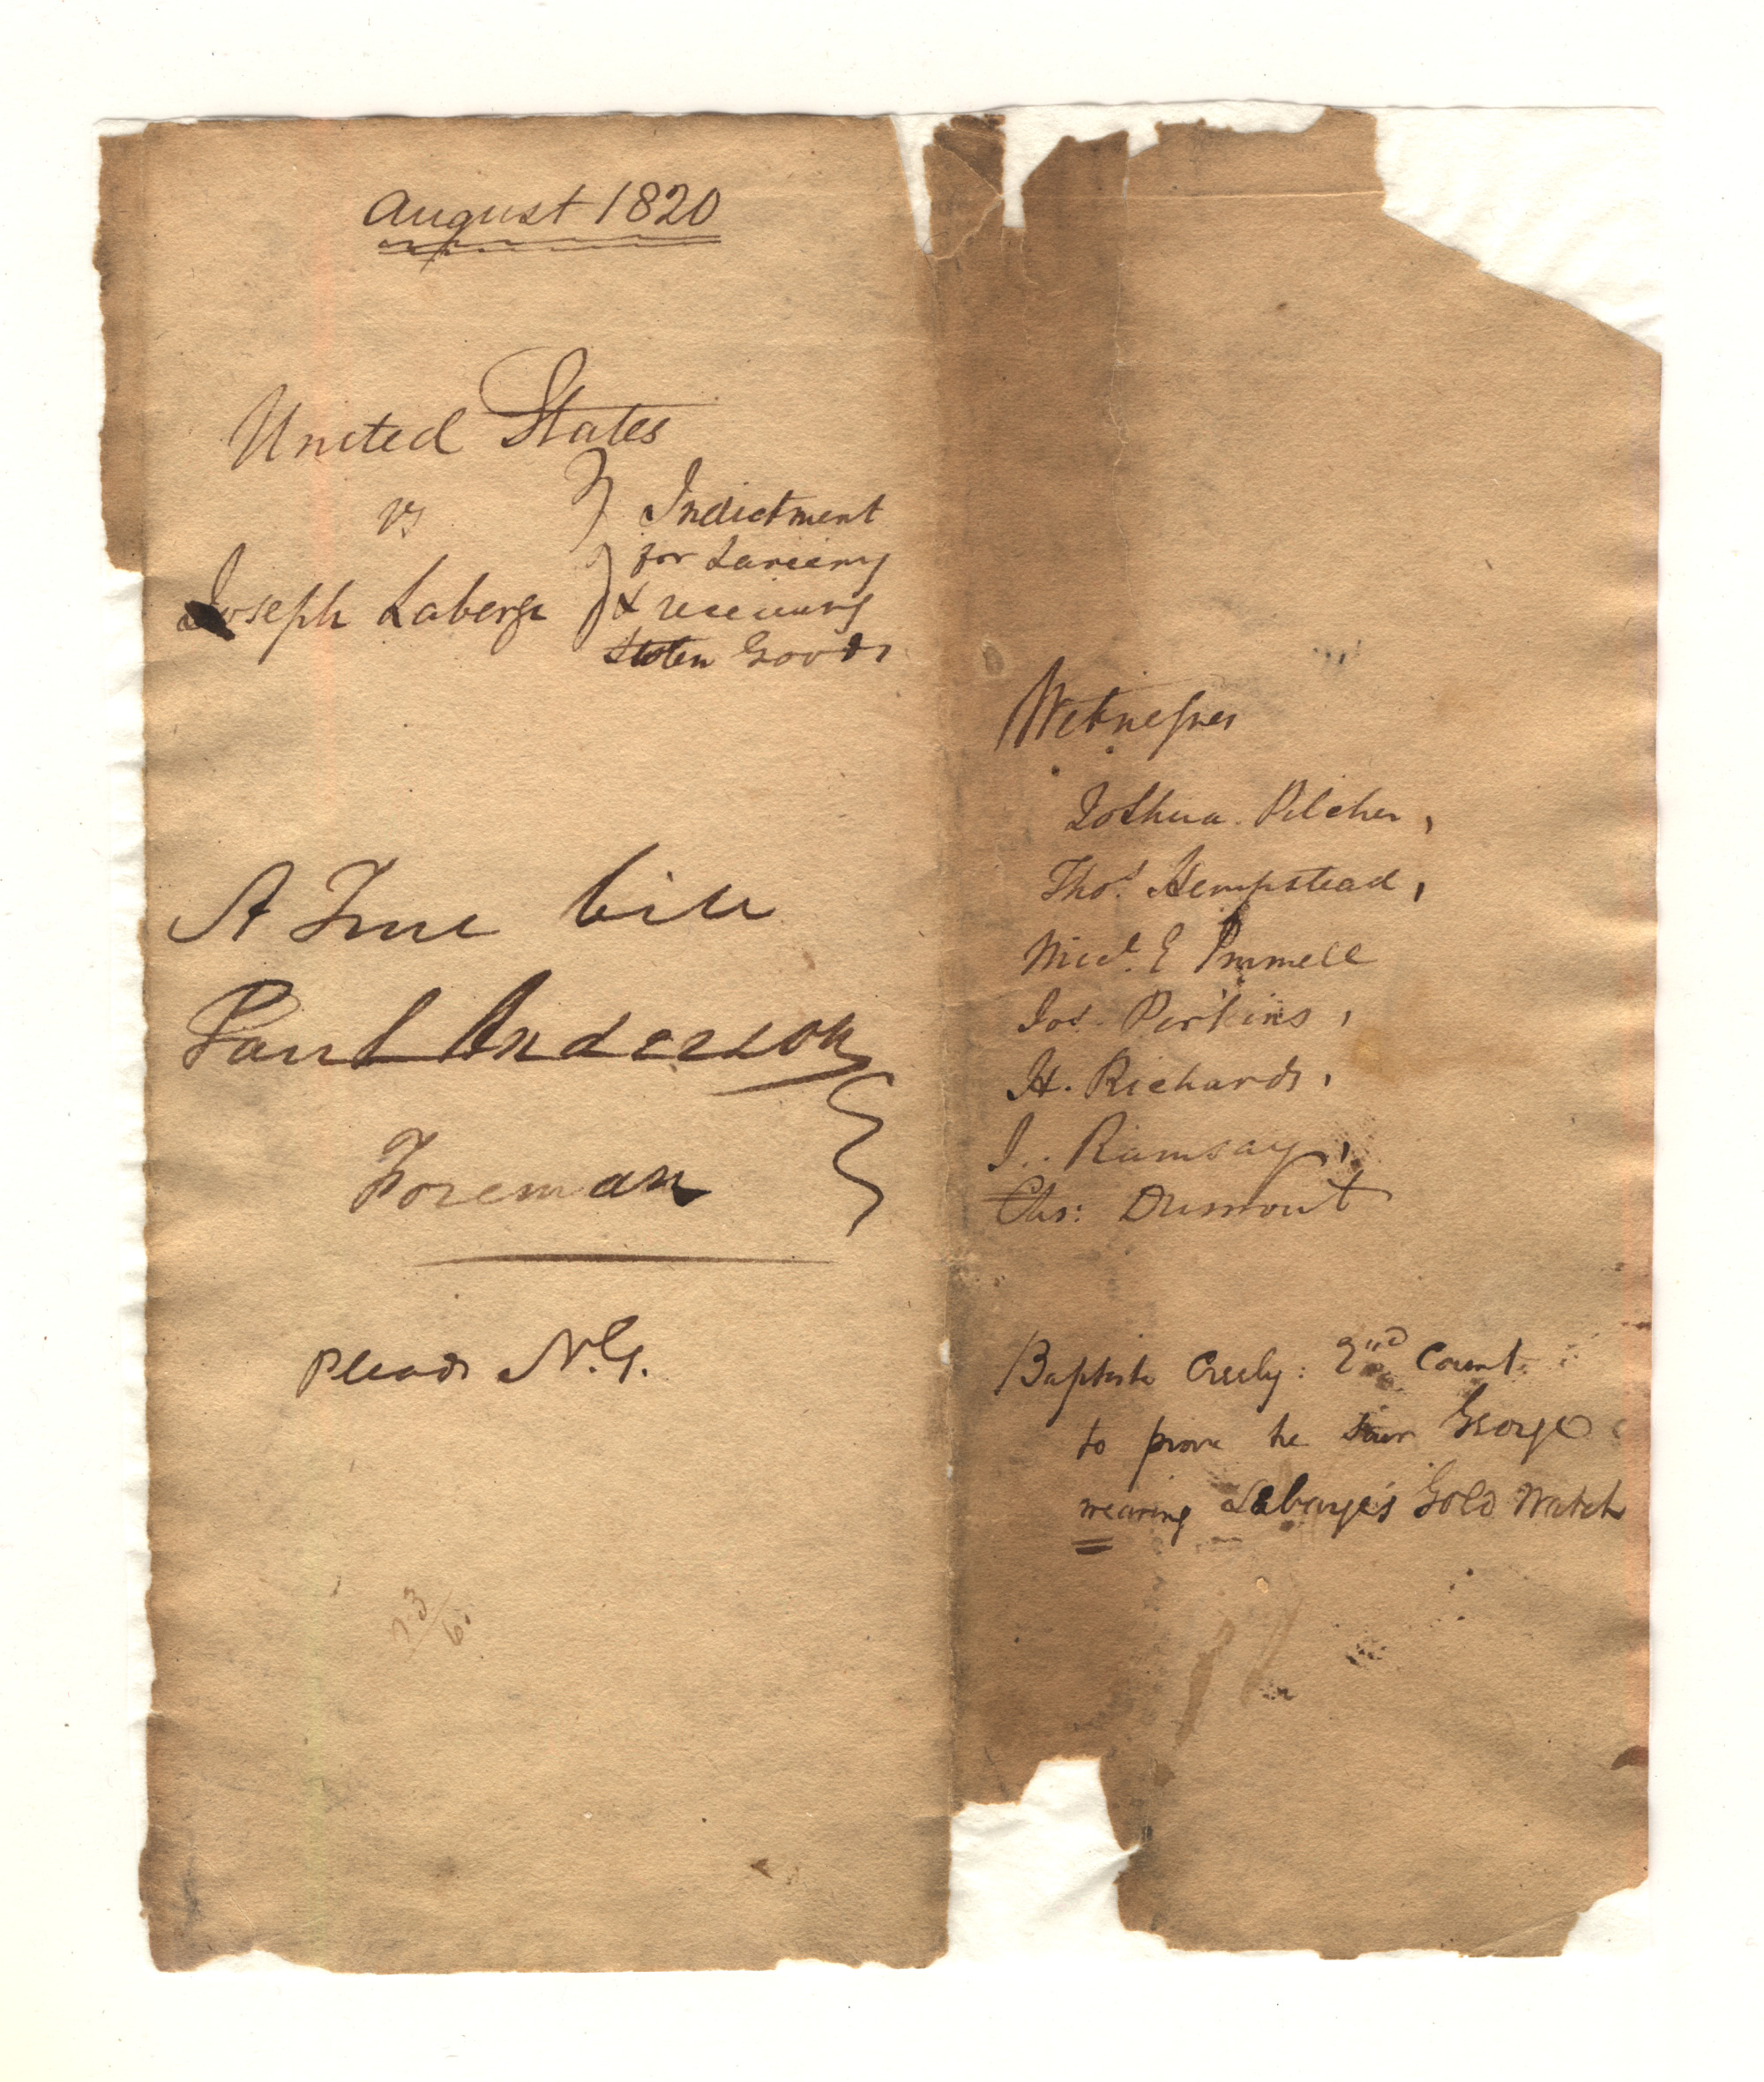 August 1820
United States
vs
Indictment
for Larceny
Joseph Laberge
& receiving
Stolen Goods
A True bill
Paul Anderson
Foreman
Pleads N.G.
Witnesses
Joshua Pilcher,
Thos. Hempstead,
Micl. E Immell
Jos. Perkins,
H. Richards,
J. Ramsay,
Chs: Dumont
Baptiste Creely: 2nd Count
to prove he saw George
wearing Labarge's Gold Watch